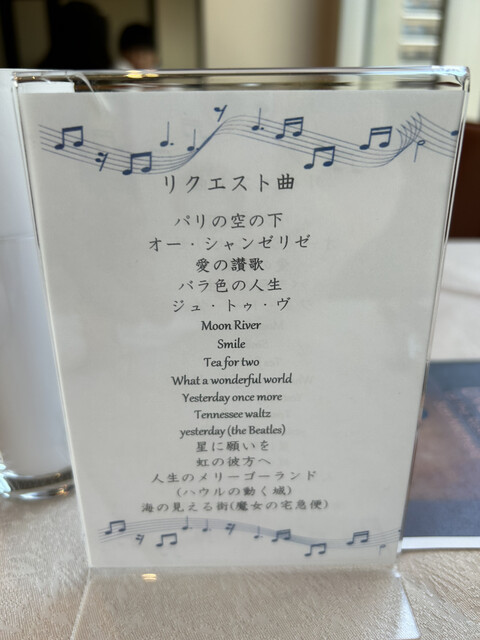 リクエスト曲
パリの空の下
オー・シャンゼリゼ
愛の讃歌
バラ色の人生
ジュ・トゥ・ヴ
Moon River
Smile
Tea for two
What a wonderful world
Yesterday once more
Tennessee waltz
yesterday (the Beatles)
星に願いを
虹の彼方へ
人生のメリーゴーランド
(ハウルの動く城)
海の見える街(魔女の宅急便)